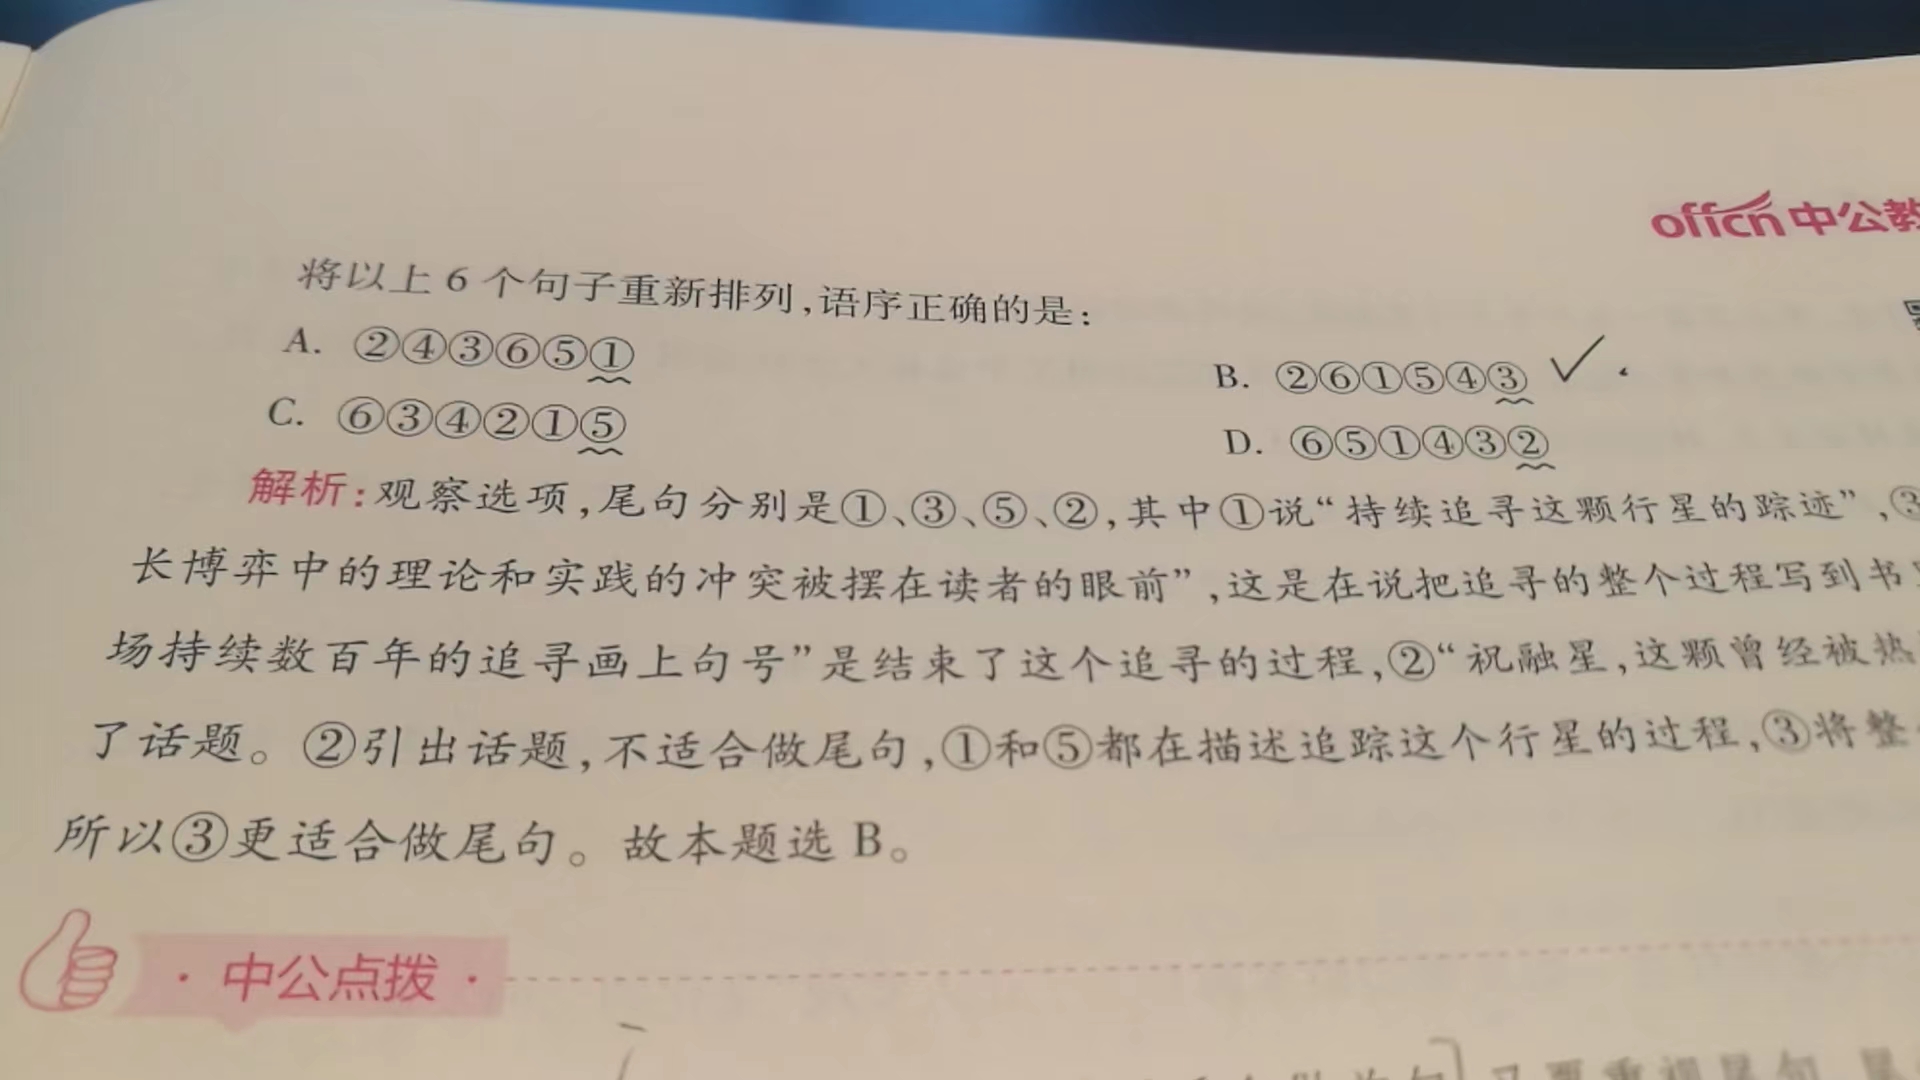 offcn中公教
将以上6个句子重新排列,语序正确的是:
A. ②④③⑥⑤①
B. ②⑥①⑤④③
C. ⑥③④②①⑤
D. ⑥⑤①④③②
解析:观察选项,尾句分别是①、③、⑤、②,其中①说“持续追寻这颗行星的踪迹”,③
长博弈中的理论和实践的冲突被摆在读者的眼前”,这是在说把追寻的整个过程写到书
场持续数百年的追寻画上句号”是结束了这个追寻的过程,②“祝融星,这颗曾经被热
了话题。②引出话题,不适合做尾句,①和⑤都在描述追踪这个行星的过程,③将整
所以③更适合做尾句。故本题选B。
·中公点拨·
尾句